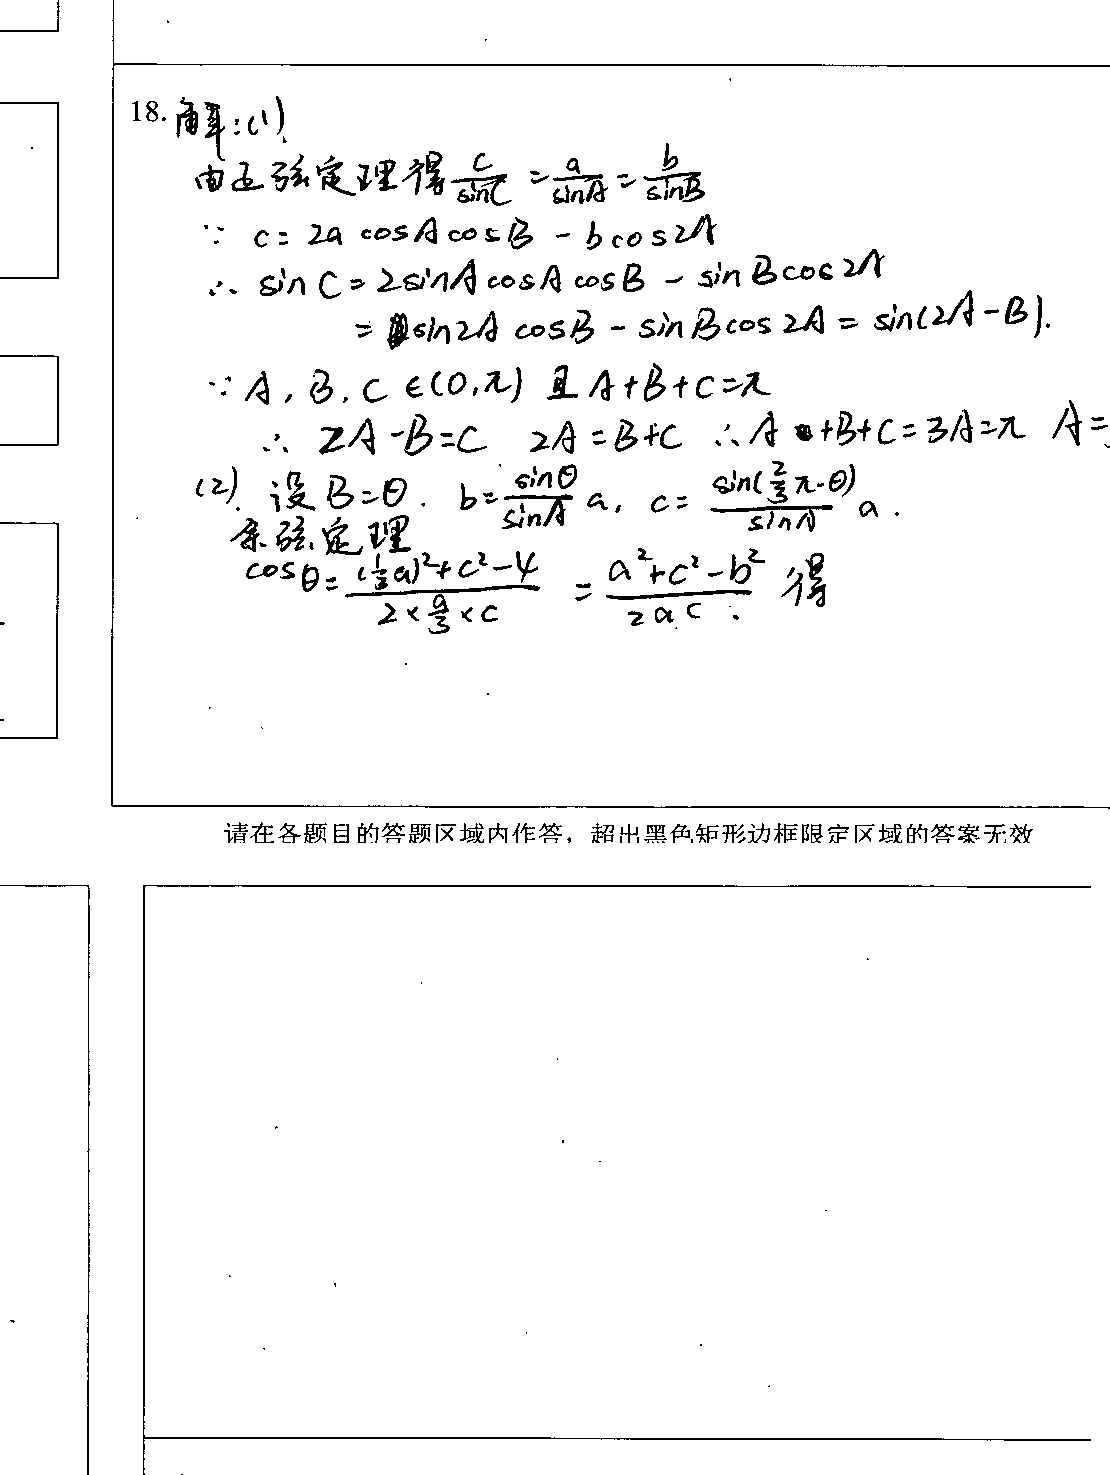 18. 解:(1)
由正弦定理得 c/sinC = a/sinA = b/sinB
∵ c = 2a cosA cosB - b cos2A
∴ sin C = 2sinA cosA cosB - sin B cos 2A
= sin2A cosB - sin B cos 2A = sin(2A-B).
∵ A, B, C ∈(0,π) 且 A+B+C=π
∴ 2A-B=C 2A=B+C ∴A+B+C=3A=π A=
(2). 设 B=θ. b=sinθ/sinA a, c= sin(2/3π-θ)/sinA a.
余弦定理
cosθ= ((1/3a)²+c²-4)/(2×a/3×c) = (a²+c²-b²)/(2ac). 得
请在各题目的答题区域内作答，超出黑色矩形边框限定区域的答案无效